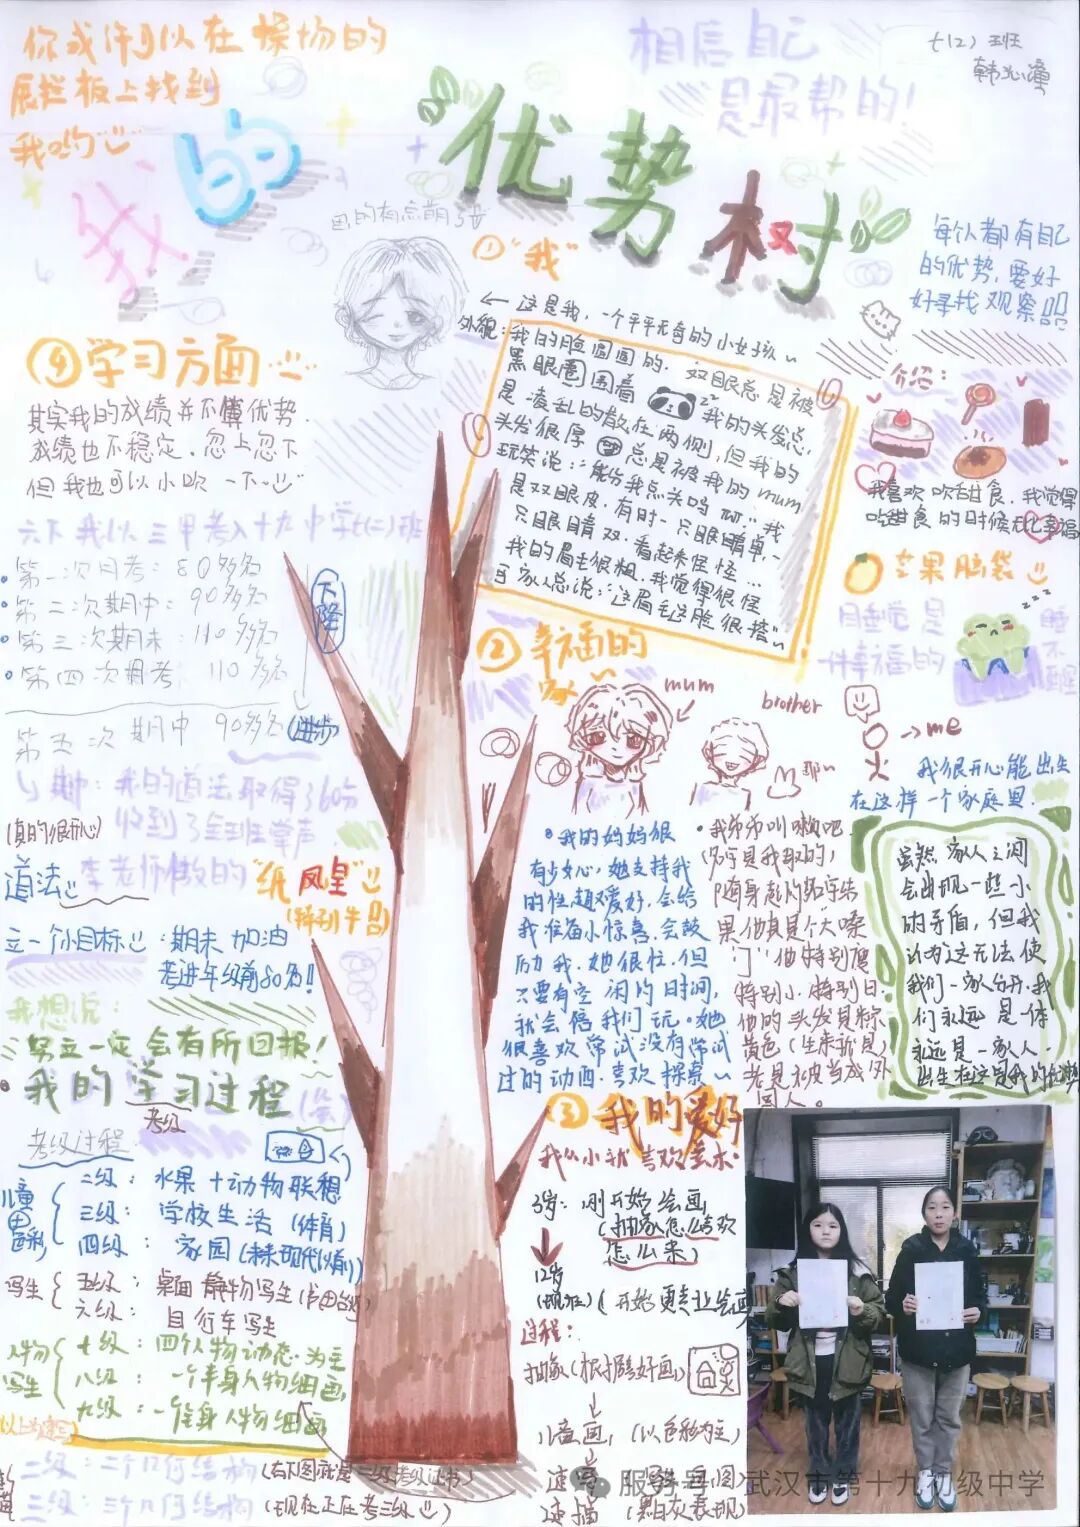 相信自己
是最帮的！
七(2)班
展栏板上找到
我哟
我的优势树
每个人都有自己
的优势，要好
好寻找 观察
①“我”
← 这是我，一个平平无奇的小女孩~
外貌：我的脸圆圆的，双眼总是被
黑眼圈围着 我的头发总
是凌乱的散在两侧，但我的
头发很厚 总是被我的mum
玩笑说：“能分我点头吗”我
是双眼皮，有时一只眼睛单，一
只眼睛双，看起来怪怪…
我的眉毛很粗，我觉得很怪
可家人总说：“这眉毛这脸很搭”~
介绍：
我喜欢吃甜食，我觉得
吃甜食的时候无比幸福
芒果脑袋
zzz
②幸福的
家
mum
brother
那~
→me
我很开心能出生
在这样一个家庭里
•我的妈妈很
有少女心，她支持我
的性趣爱好，会给
我准备小惊喜，会鼓
励我，她很忙，但
只要有空闲的时间，
就会陪我们玩。她
很喜欢常试没有常试
过的动西，喜欢探索~
特别小，特别白，
他的头发是棕
黄色（生来就是）
老是被当成外
国人。
虽然家人之间
会出现一些小
的矛盾，但我
认为这无法使
我们一家分开，我
们永远是一体
永远是一家人。
出生在这是我的优势
③我的爱好
我从小就喜欢美术
3岁：刚开始绘画
（抽象怎么喜欢
怎么来）
12岁
（现在）（开始更专业绘画
过程：
抽象（根据喜好画）
儿童画，（以色彩为主）
速写
速描（黑白灰表现）
④学习方面
其实我的成绩并不懂优势
成绩也不稳定，忽上忽下
但我也可以小吹一下
六下 我以三甲考入十九中学七(二)班
•第一次月考：80多名
•第二次期中：90多名
•第三次期末：110多名
•第四次期考：110多名
下降
第五次 期中 90多名 进步
期中：我的道法取得了60分
（真的很开心） 收到了全班掌声
道法 李老师做的“纸凤凰”
（特别牛）
立一个小目标：期末加油
考进年级前80名！！
我想说：
努立一定会有所回报！
我的学习过程
考级
考级过程
儿童画色彩
二级：水果+动物联想
三级：学校生活（体育）
四级：家园（未来现代以前）
写生
五级：桌面静物写生
六级：自行车写生
人物写生
七级：四个人物动态为主
八级：一个半身人物细画
九级：一个全身人物细画
二级：二个几何结构（右下图就是二级考级证书）
三级：三个几何结构（现在正在考三级）
服务号 · 武汉市第十九初级中学